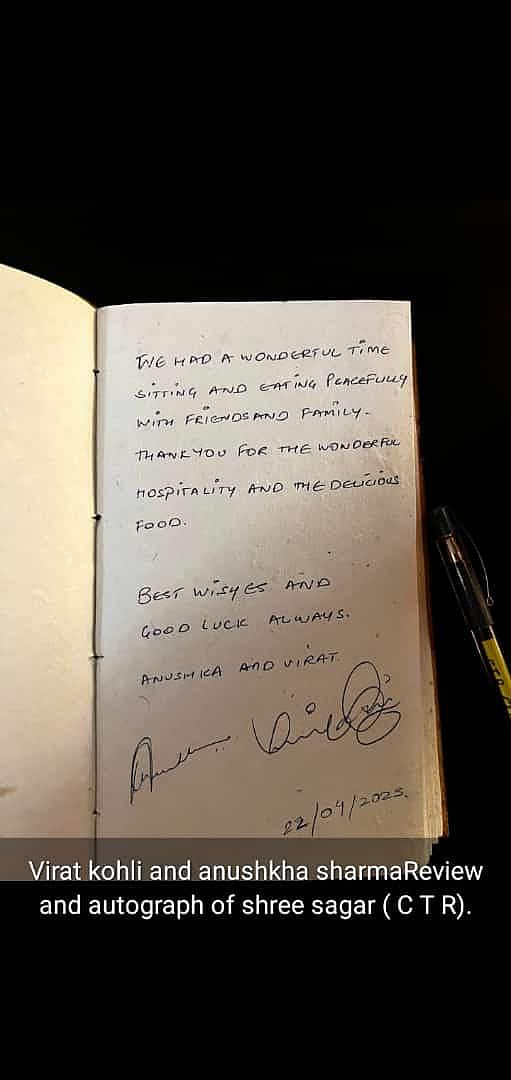 WE HAD A WONDERFUL TIME
SITTING AND EATING PEACEFULLY
WITH FRIENDS AND FAMILY.
THANK YOU FOR THE WONDERFUL
HOSPITALITY AND THE DELICIOUS
FOOD.
BEST WISHES AND
GOOD LUCK ALWAYS.
ANUSHKA AND VIRAT.
22/04/2023.
Virat kohli and anushkha sharmaReview
and autograph of shree sagar ( C T R).